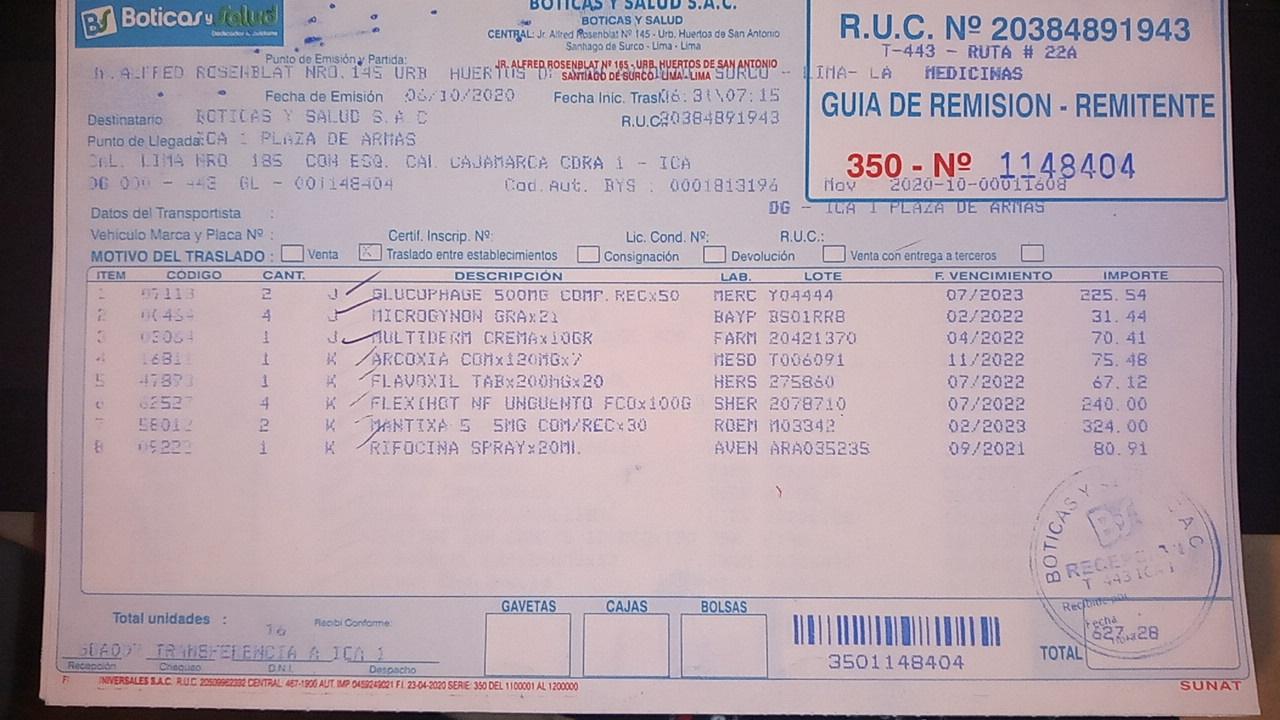 BS Boticas y Salud
BOTICAS Y SALUD S.A.C.
BOTICAS Y SALUD
CENTRAL: Jr. Alfred Rosenblat Nº 145 - Urb. Huertos de San Antonio
Santiago de Surco - Lima - Lima
R.U.C. Nº 20384891943
T-443 - RUTA # 22A
MEDICINAS
GUIA DE REMISION - REMITENTE
350 - Nº 1148404
Mov 2020-10-00011608
Punto de Emisión y Partida:
JR. ALFRED ROSENBLAT NRO. 145 URB HUERTOS SURCO - LIMA- LA
JR. ALFRED ROSENBLAT Nº 165 - URB. HUERTOS DE SAN ANTONIO
SANTIAGO DE SURCO - LIMA - LIMA
Fecha de Emisión 06/10/2020 Fecha Inic. Trasl 06:31\07:15
Destinatario BOTICAS Y SALUD S.A.C R.U.C. 20384891943
Punto de Llegada: ICA 1 PLAZA DE ARMAS
CAL. LIMA NRO 185 CON ESQ. CAL CAJAMARCA CDRA 1 - ICA
DG 000 - 443 GL - 001148404 Cod.Aut. BYS : 0001813196
DG - ICA 1 PLAZA DE ARMAS
Datos del Transportista :
Vehículo Marca y Placa Nº : Certif. Inscrip. Nº: Lic. Cond. Nº: R.U.C.:
MOTIVO DEL TRASLADO : Venta X Traslado entre establecimientos Consignación Devolución Venta con entrega a terceros
ITEM CÓDIGO CANT. DESCRIPCIÓN LAB. LOTE F. VENCIMIENTO IMPORTE
1 2 J GLUCOPHAGE 500MG COMP.RECx50 MERC Y04444 07/2023 225.54
2 4 J MICROGYNON GRAx21 BAYP BS01RR8 02/2022 31.44
3 1 J MULTIDERM CREMAx10GR FARM 20421370 04/2022 70.41
4 1 K ARCOXIA COMx120MGx7 MESD T006091 11/2022 75.48
5 1 K FLAVOXIL TABx200MGx20 HERS 275860 07/2022 67.12
6 4 K FLEXIHOT NF UNGUENTO FCOx100G SHER 2078710 07/2022 240.00
7 2 K MANTIXA 5 5MG COM/RECx30 ROEM M03342 02/2023 324.00
8 1 K RIFOCINA SPRAYx20ML AVEN ARA03523S 09/2021 80.91
BOTICAS Y S.A.C
BS
T 443 ICA 1
Recibido por
Fecha
Total unidades : 16 Recibi Conforme:
GAVETAS CAJAS BOLSAS
3501148404
TOTAL 627.28
TRANSFERENCIA A ICA 1
Recepción Chequeo D.N.I. Despacho
S.A.C. R.U.C. 20509962392 CENTRAL: 467-1900 AUT. IMP 0459249021 F.I. 23-04-2020 SERIE: 350 DEL 1100001 AL 1200000
SUNAT